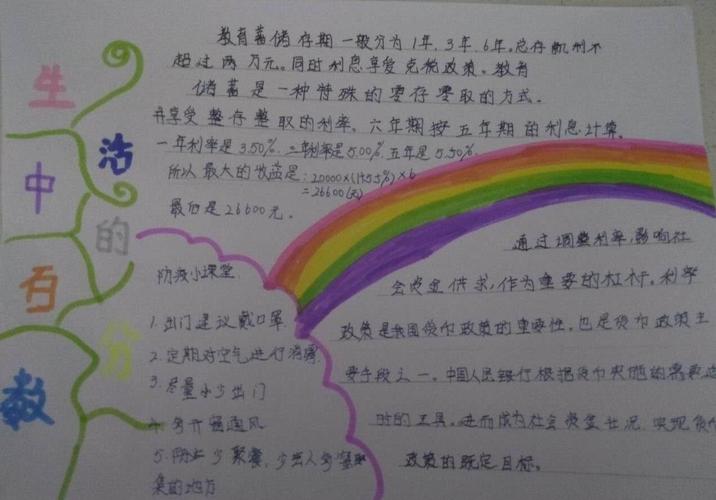 生活中的百分数
教育蓄储存期一般分为1年,3年,6年。总存款利不
超过两万元。同时利息享受免税政策。教育
储蓄是一种特殊的零存零取的方式。
并享受整存整取的利率。六年期按五年期的利息计算。
一年利率是3.50%,三年利率是5.00%,五年是5.50%.
所以最大的收益是:20000×(1+5.5%)×6
=26600(元)
最后是26600元。
防疫小课堂
1.出门建议戴口罩
2.定期对空气进行消毒
3.尽量少出门
4.多开窗通风
5.防止少聚餐,少去人多
集的地方
通过调整利率,影响社
会资金供求,作为重要的杠杆。利率
政策是我国货币政策的重要性,也是货币政策主
要手段之一。中国人民银行根据货币实施的需要适
时的工具。进而成为社会资金状况,实现货币
政策的既定目标。